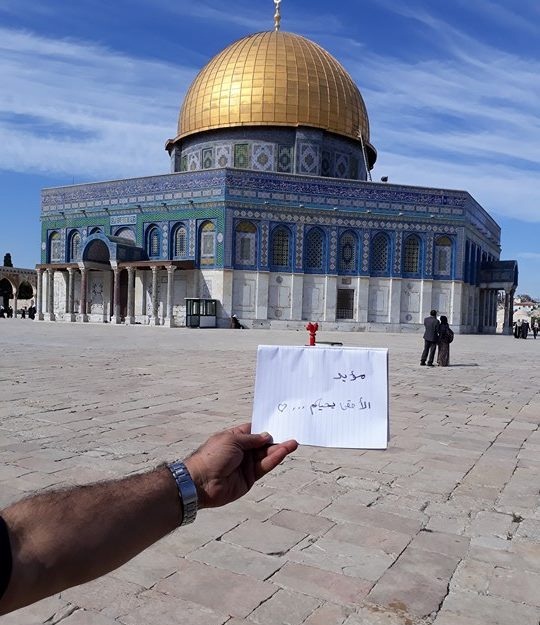 مؤيد
الأقصى يحيكم ... ♡